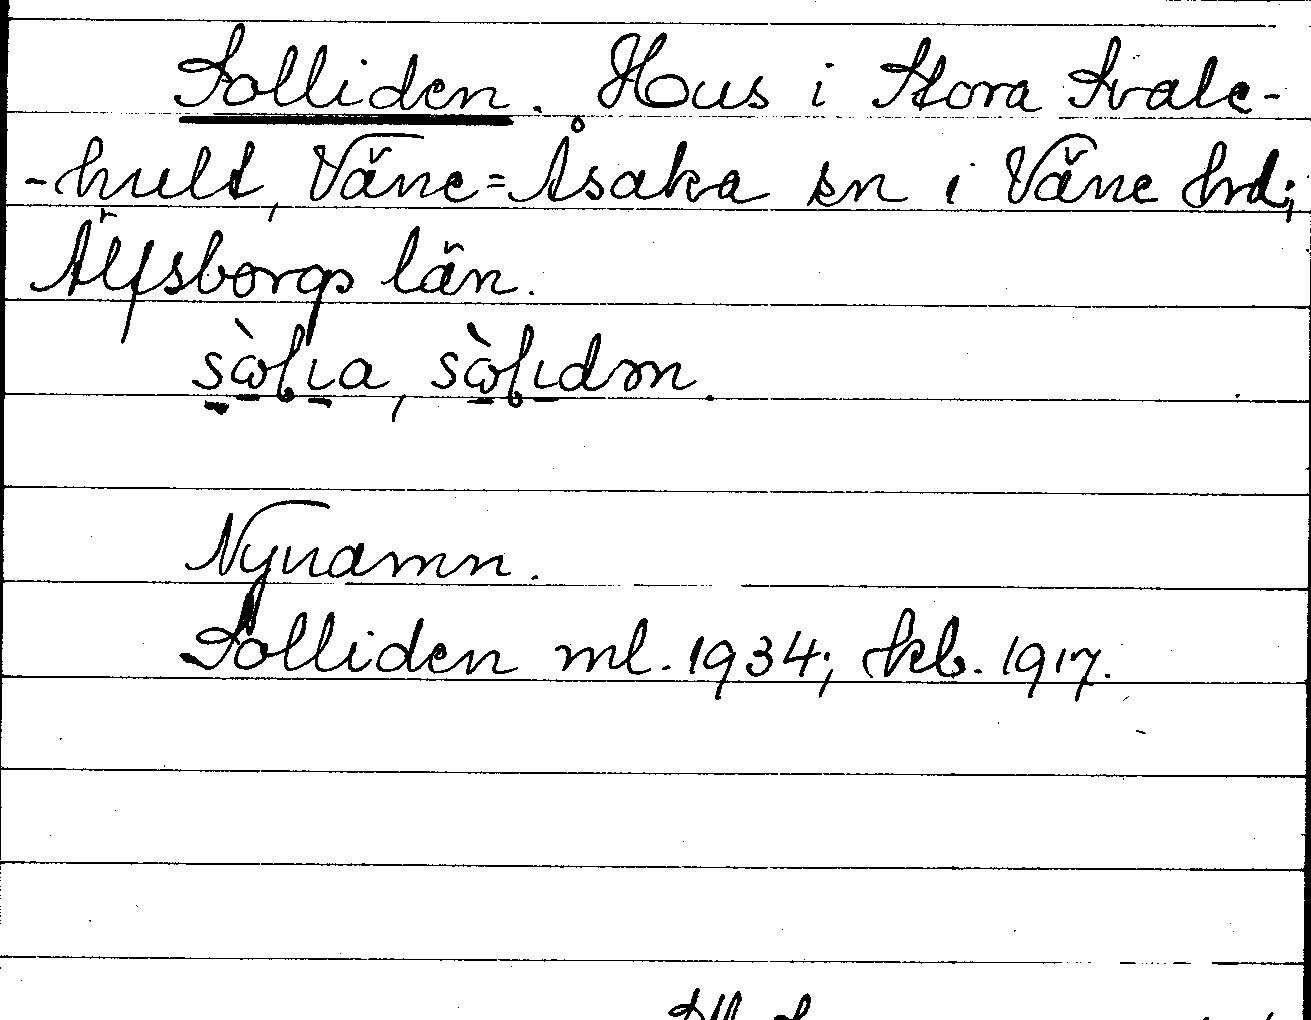 Solliden. Hus i Stora Svale-
-hult, Väne=Åsaka sn i Väne hrd;
Älfsborgs län.
Nynamn.
Solliden ml. 1934; kb. 1917.